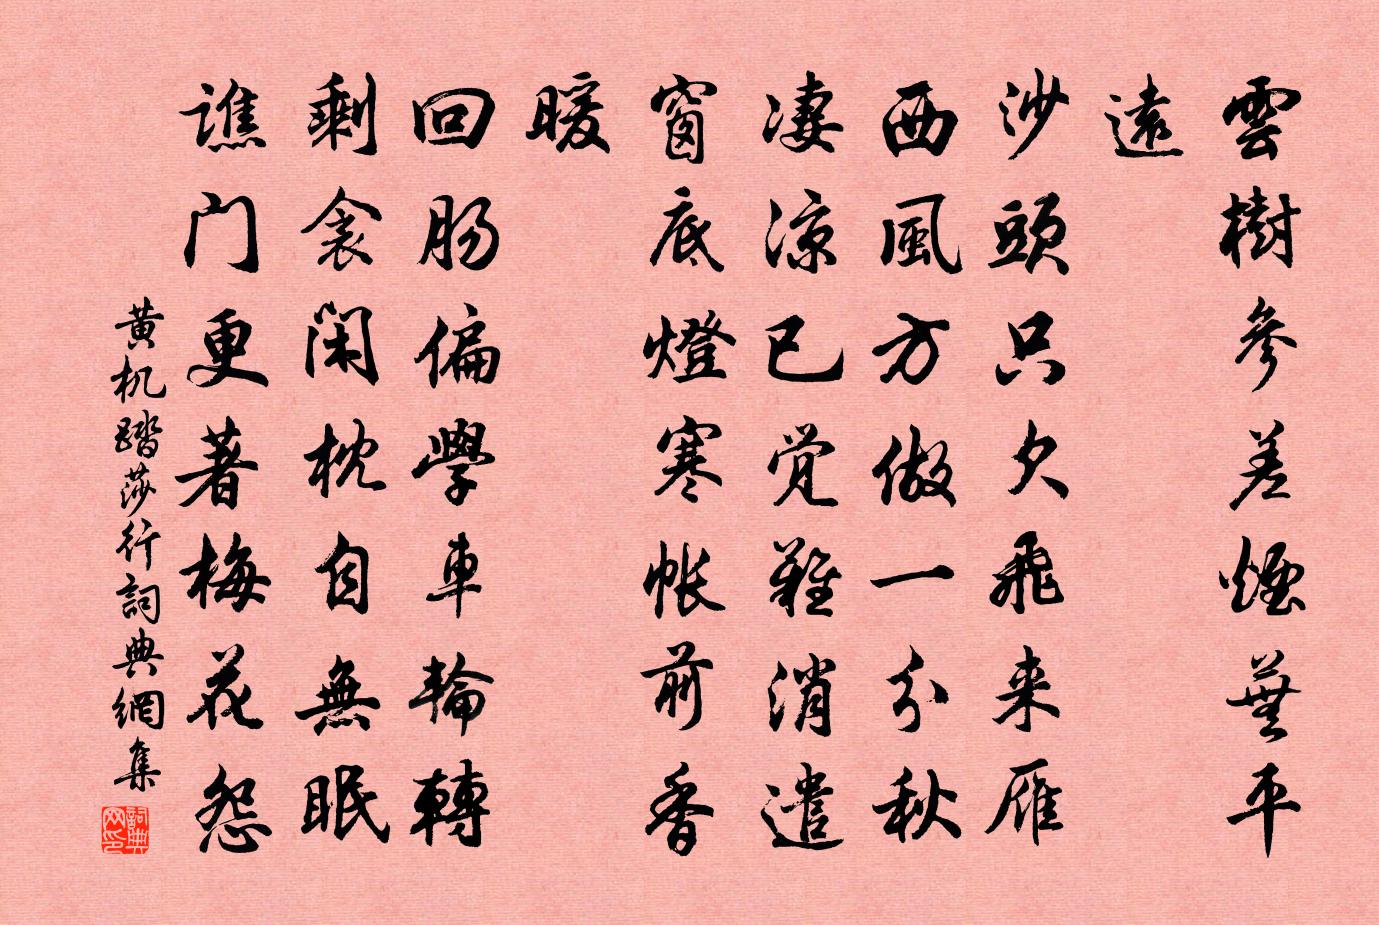 雲樹參差煙蕪平
遠
沙頭只欠飛来雁
西風方做一分秋
凄涼已觉難消遣
窗底燈寒帐前香
暖
回肠偏學車輪轉
剩衾閑枕自無眠
譙门更著梅花怨
黄机踏莎行詞典網集
詞典
网印